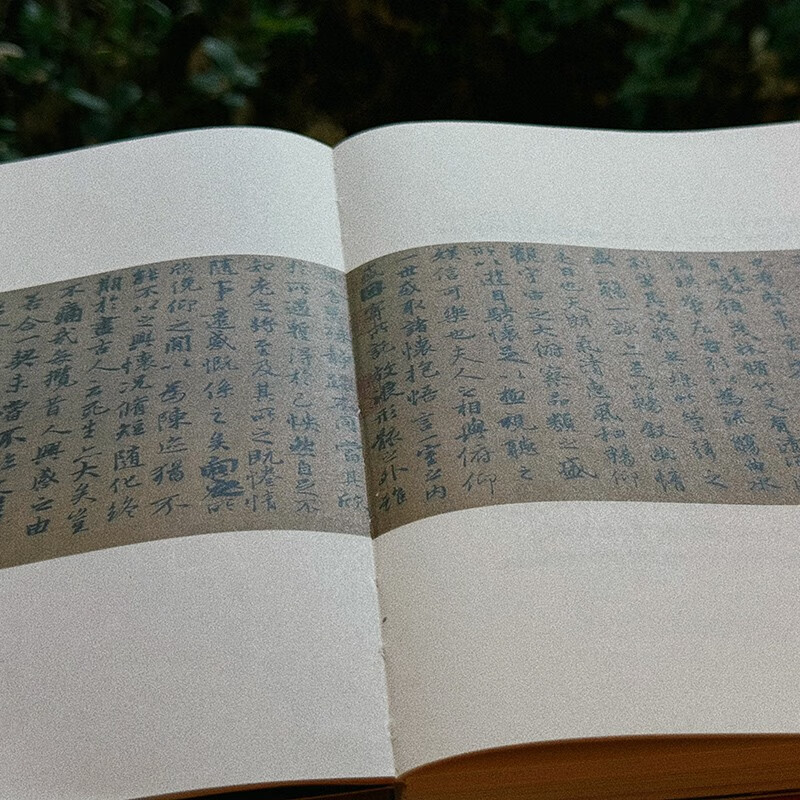 有清流激
湍映帶左右引以為流觴曲水
列坐其次雖無絲竹管弦之
盛一觴一詠亦足以暢敘幽情
是日也天朗氣清惠風和暢仰
觀宇宙之大俯察品類之盛
所以遊目騁懷足以極視聽之
娛信可樂也夫人之相與俯仰
一世或取諸懷抱悟言一室之內
或因寄所託放浪形骸之外雖
趣舍萬殊靜躁不同當其欣
於所遇暫得於己快然自足不
知老之將至及其所之既惓情
隨事遷感慨係之矣向之所
欣俛仰之間以為陳迹猶不
能不以之興懷況脩短隨化終
期於盡古人云死生亦大矣豈
不痛哉每攬昔人興感之由
若合一契未嘗不臨文嗟